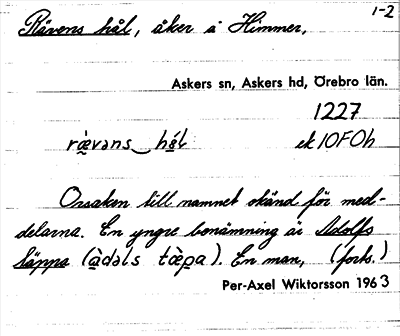 1-2
Rävens hål, åker å Himmer,
Askers sn, Askers hd, Örebro län.
1227
rä̀vəns‿hǻl ek 10F0h
Orsaken till namnet okänd för med-
delarna. En yngre benämning är Adolfs
täppa (àdəls tæ̀pa). En man, (forts.)
Per-Axel Wiktorsson 1963